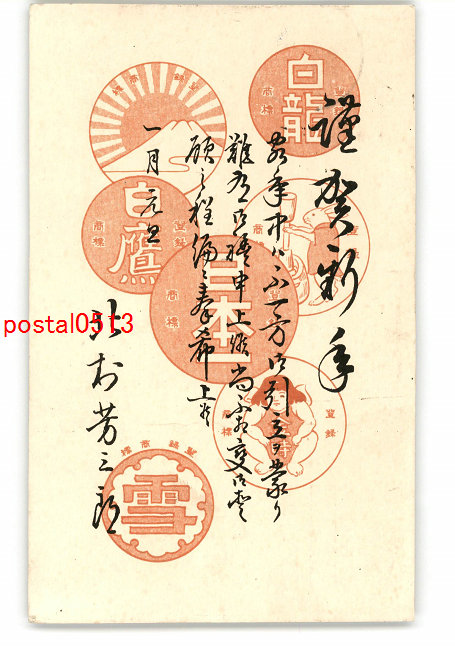 謹賀新年
客年中ハ不一方御引立ヲ蒙り
難有御礼申上候尚不相変御愛
顧之程偏ニ奉希上候
一月元旦
北村芳三郎
白龍
登録
商標
登録商標
白鷹
登録
商標
日本一
商標
登録
商標
登録商標
雪
postal0313